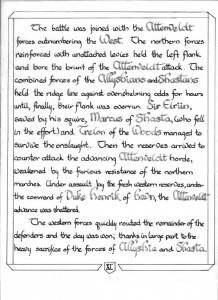 The battle was joined with the Attenveldt
forces outnumbering the West. The northern forces
reinforced with unattached levies held the left flank
and bore the brunt of the Attenveldt attack. The
combined forces of the Allyshians and Shastans
held the ridge line against overwhelming odds for hours
until, finally, their flank was overrun. Sir Eirun,
saved by his squire, Marcus of Shasta, (who fell
in the effort) and Trelon of the Woods managed to
survive the onslaught. Then the reserves arrived to
counter attack the advancing Attenveldt horde,
weakened by the furious resistance of the northern
marches. Under assault by the fresh western reserves, under
the command of Duke Henrik of Havn, the Attenveldt
advance was shattered.
The western forces quickly routed the remainder of the
defenders and the day was won; thanks in large part to the
heavy sacrifice of the forces of Allyshia and Shasta.
XL